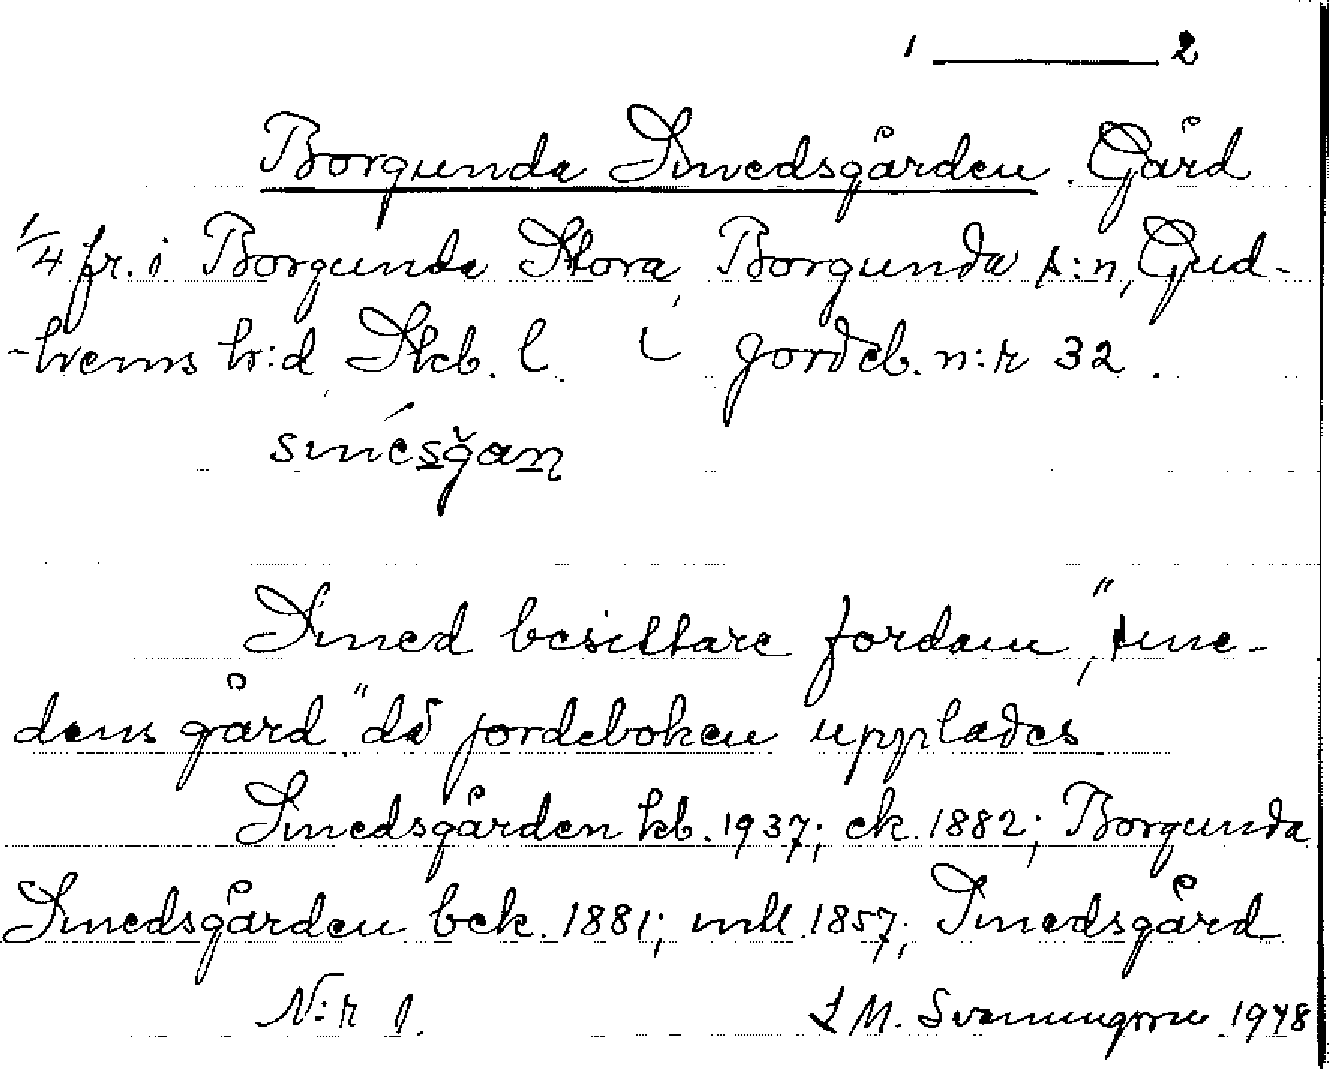 1 ——— 2
Borgunda Smedsgården. Gård
1/4 fr. i Borgunda Stora, Borgunda s:n, Gud-
-hems h:d Skb. l. Jordeb. n:r 32.
smésğan
Smed besittare fordom, "sme-
dens gård" då jordeboken upplades
Smedsgården kb. 1937; ek. 1882; Borgunda
Smedsgården bek. 1881; mll. 1857; Smedsgård
N:r 1. 1948